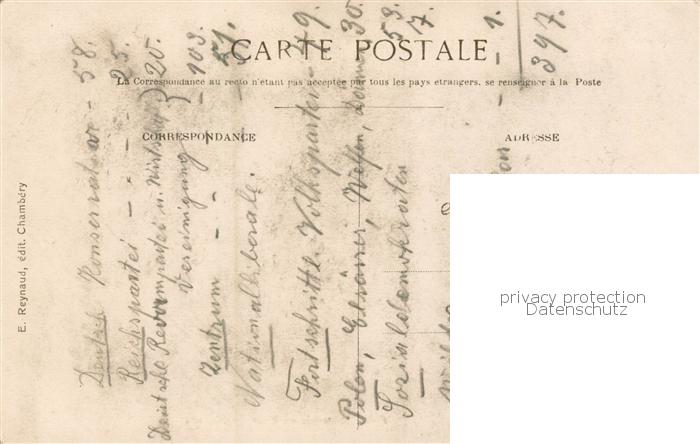 CARTE POSTALE
La Correspondance au recto n'étant pas acceptée par tous les pays etrangers, se renseigner à la Poste
CORRESPONDANCE
ADRESSE
E. Reynaud, édit. Chambéry
Deutsch Konservative - 58.
Reichspartei - - - 25.
Deutsche Reformpartei u. Wirtsch. } 20.
Vereinigung }
Zentrum - - - 103.
Nationalliberale. 51.
Fortschrittl. Volkspartei - 49.
Polen, Elsässer, Welfen, Dänen 30.
Sozialdemokraten 53.
Wilde
7.
- 1.
397.
privacy protection
Datenschutz